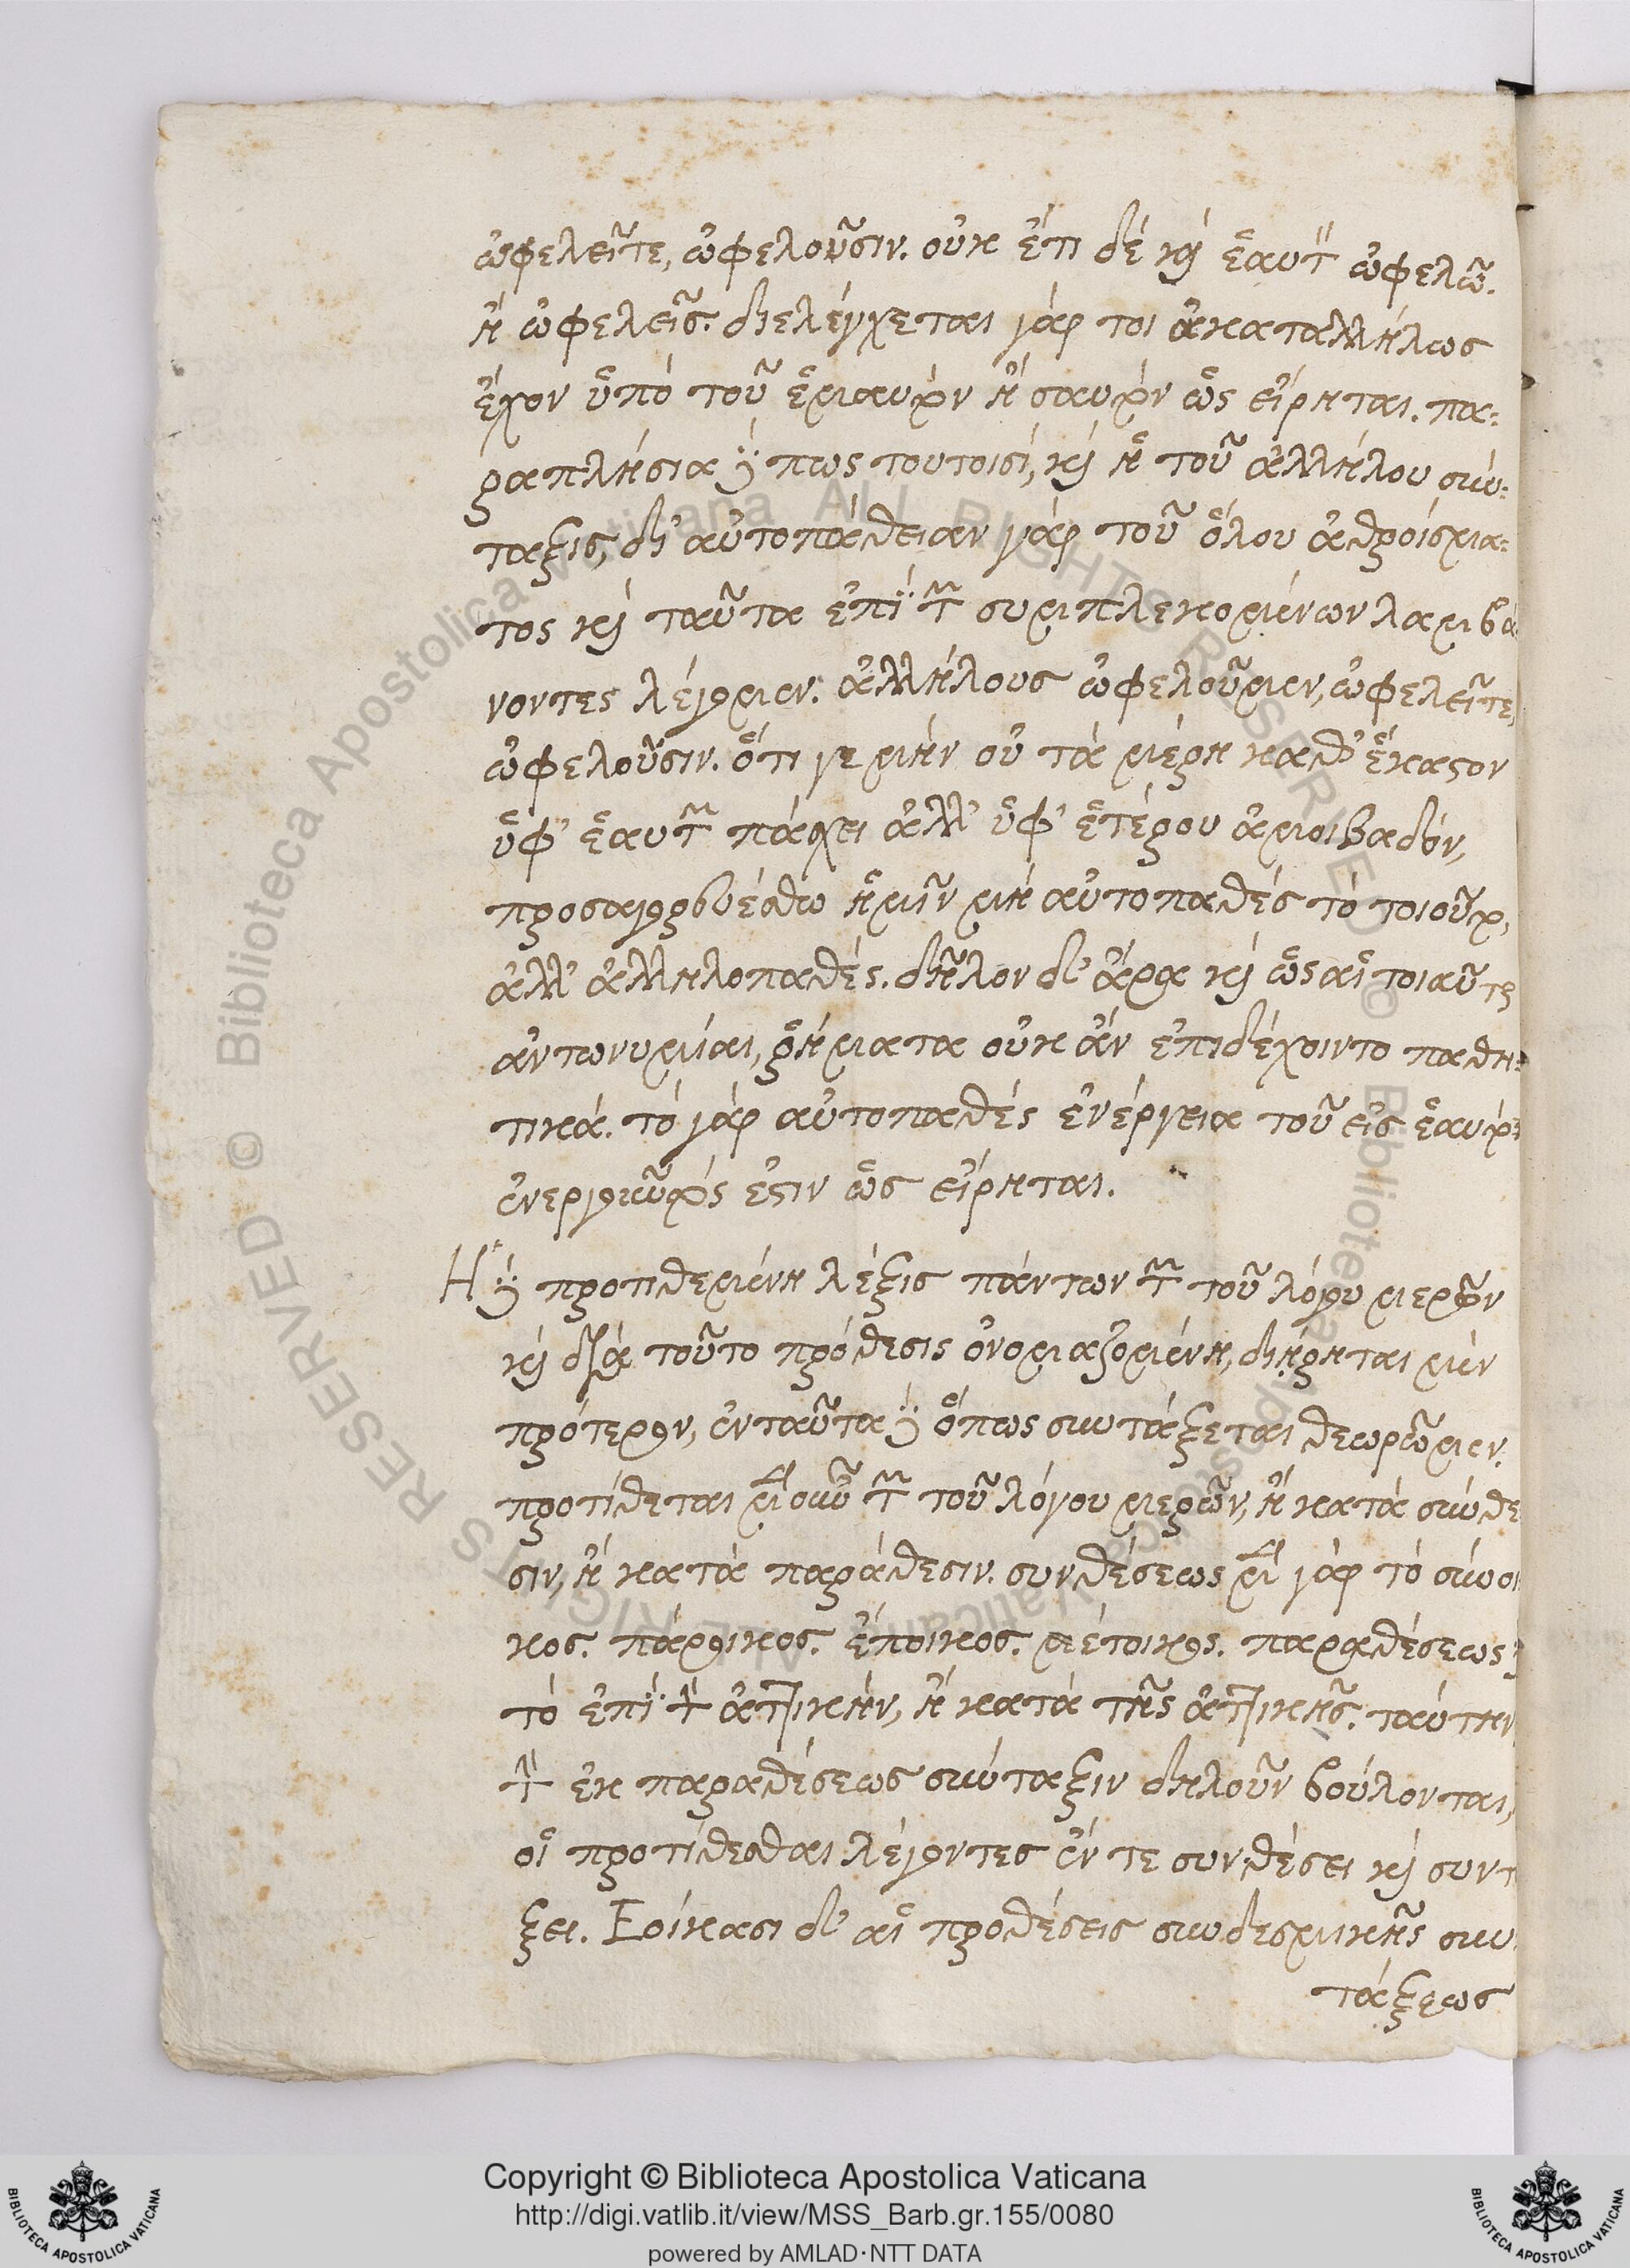 ὠφελεῖτε, ὠφελοῦσιν. οὐκ ἔτι δέ καὶ ἑαυτὸν ὠφελῶ.
ἢ ὠφελεῖς. διελέγχεται γάρ τοι ἀκαταλλήλως
ἔχον ὑπὸ τοῦ ἐμαυτὸν ἢ σαυτὸν ὡς εἴρηται. πα-
ραπλήσια δέ πως τουτοισί, καὶ ἡ τοῦ ἀλλήλου σύν-
ταξις, δι' αὐτοπάθειαν γὰρ τοῦ ὅλου ἀθροίσμα-
τος καὶ ταῦτα ἐπὶ τῶν συμπλεκομένων λαμβά
νοντες λέγομεν. ἀλλήλους ὠφελοῦμεν, ὠφελεῖτε,
ὠφελοῦσιν. ὅτι γε μὴν οὐ τὰ μέρη καθ' ἕκαστον
ὑφ' ἑαυτῶν πάσχει ἀλλ' ὑφ' ἑτέρου ἀμοιβαδόν,
προσαγορευέσθω ἡμῖν μὴ αὐτοπαθές τὸ τοιοῦτο,
ἀλλ' ἀλληλοπαθές. δῆλον δ' ἄρα καὶ ὡς αἱ τοιαῦτ
ἀντωνυμίαι, ῥήματα οὐκ ἂν ἐπιδέχοιντο παθη-
τικά. τὸ γὰρ αὐτοπαθές ἐνέργεια τοῦ εἰς ἑαυτὸν
ἐνεργοῦντός ἐστιν ὡς εἴρηται.
Ἡ δὲ προτιθεμένη λέξις πάντων τῶν τοῦ λόγου μερῶν
καὶ διὰ τοῦτο πρόθεσις ὀνομαζομένη, διῄρηται μὲν
πρότερον, ἐνταῦτα δὲ ὅπως συντάξεται θεωρῶμεν.
προτίθεται μὲν οὖν τῶν τοῦ λόγου μερῶν, ἢ κατὰ σύνθε
σιν, ἢ κατὰ παράθεσιν. συνθέσεως μὲν γὰρ τὸ σύνοι
κος. πάροικος. ἔποικος. μέτοικος. παραθέσεως δὲ
τὸ ἐπὶ τὴν ἀττικήν, ἢ κατὰ τῆς ἀττικῆς. ταύτην
τὴν ἐκ παραθέσεως σύνταξιν δηλοῦν βούλονται,
οἱ προτίθεσθαι λέγοντες ἔν τε συνθέσει καὶ συντ
ξει. Ἐοίκασι δ' αἱ προθέσεις συνδεσμικῆς συν
τάξεως
Copyright © Biblioteca Apostolica Vaticana
http://digi.vatlib.it/view/MSS_Barb.gr.155/0080
powered by AMLAD·NTT DATA